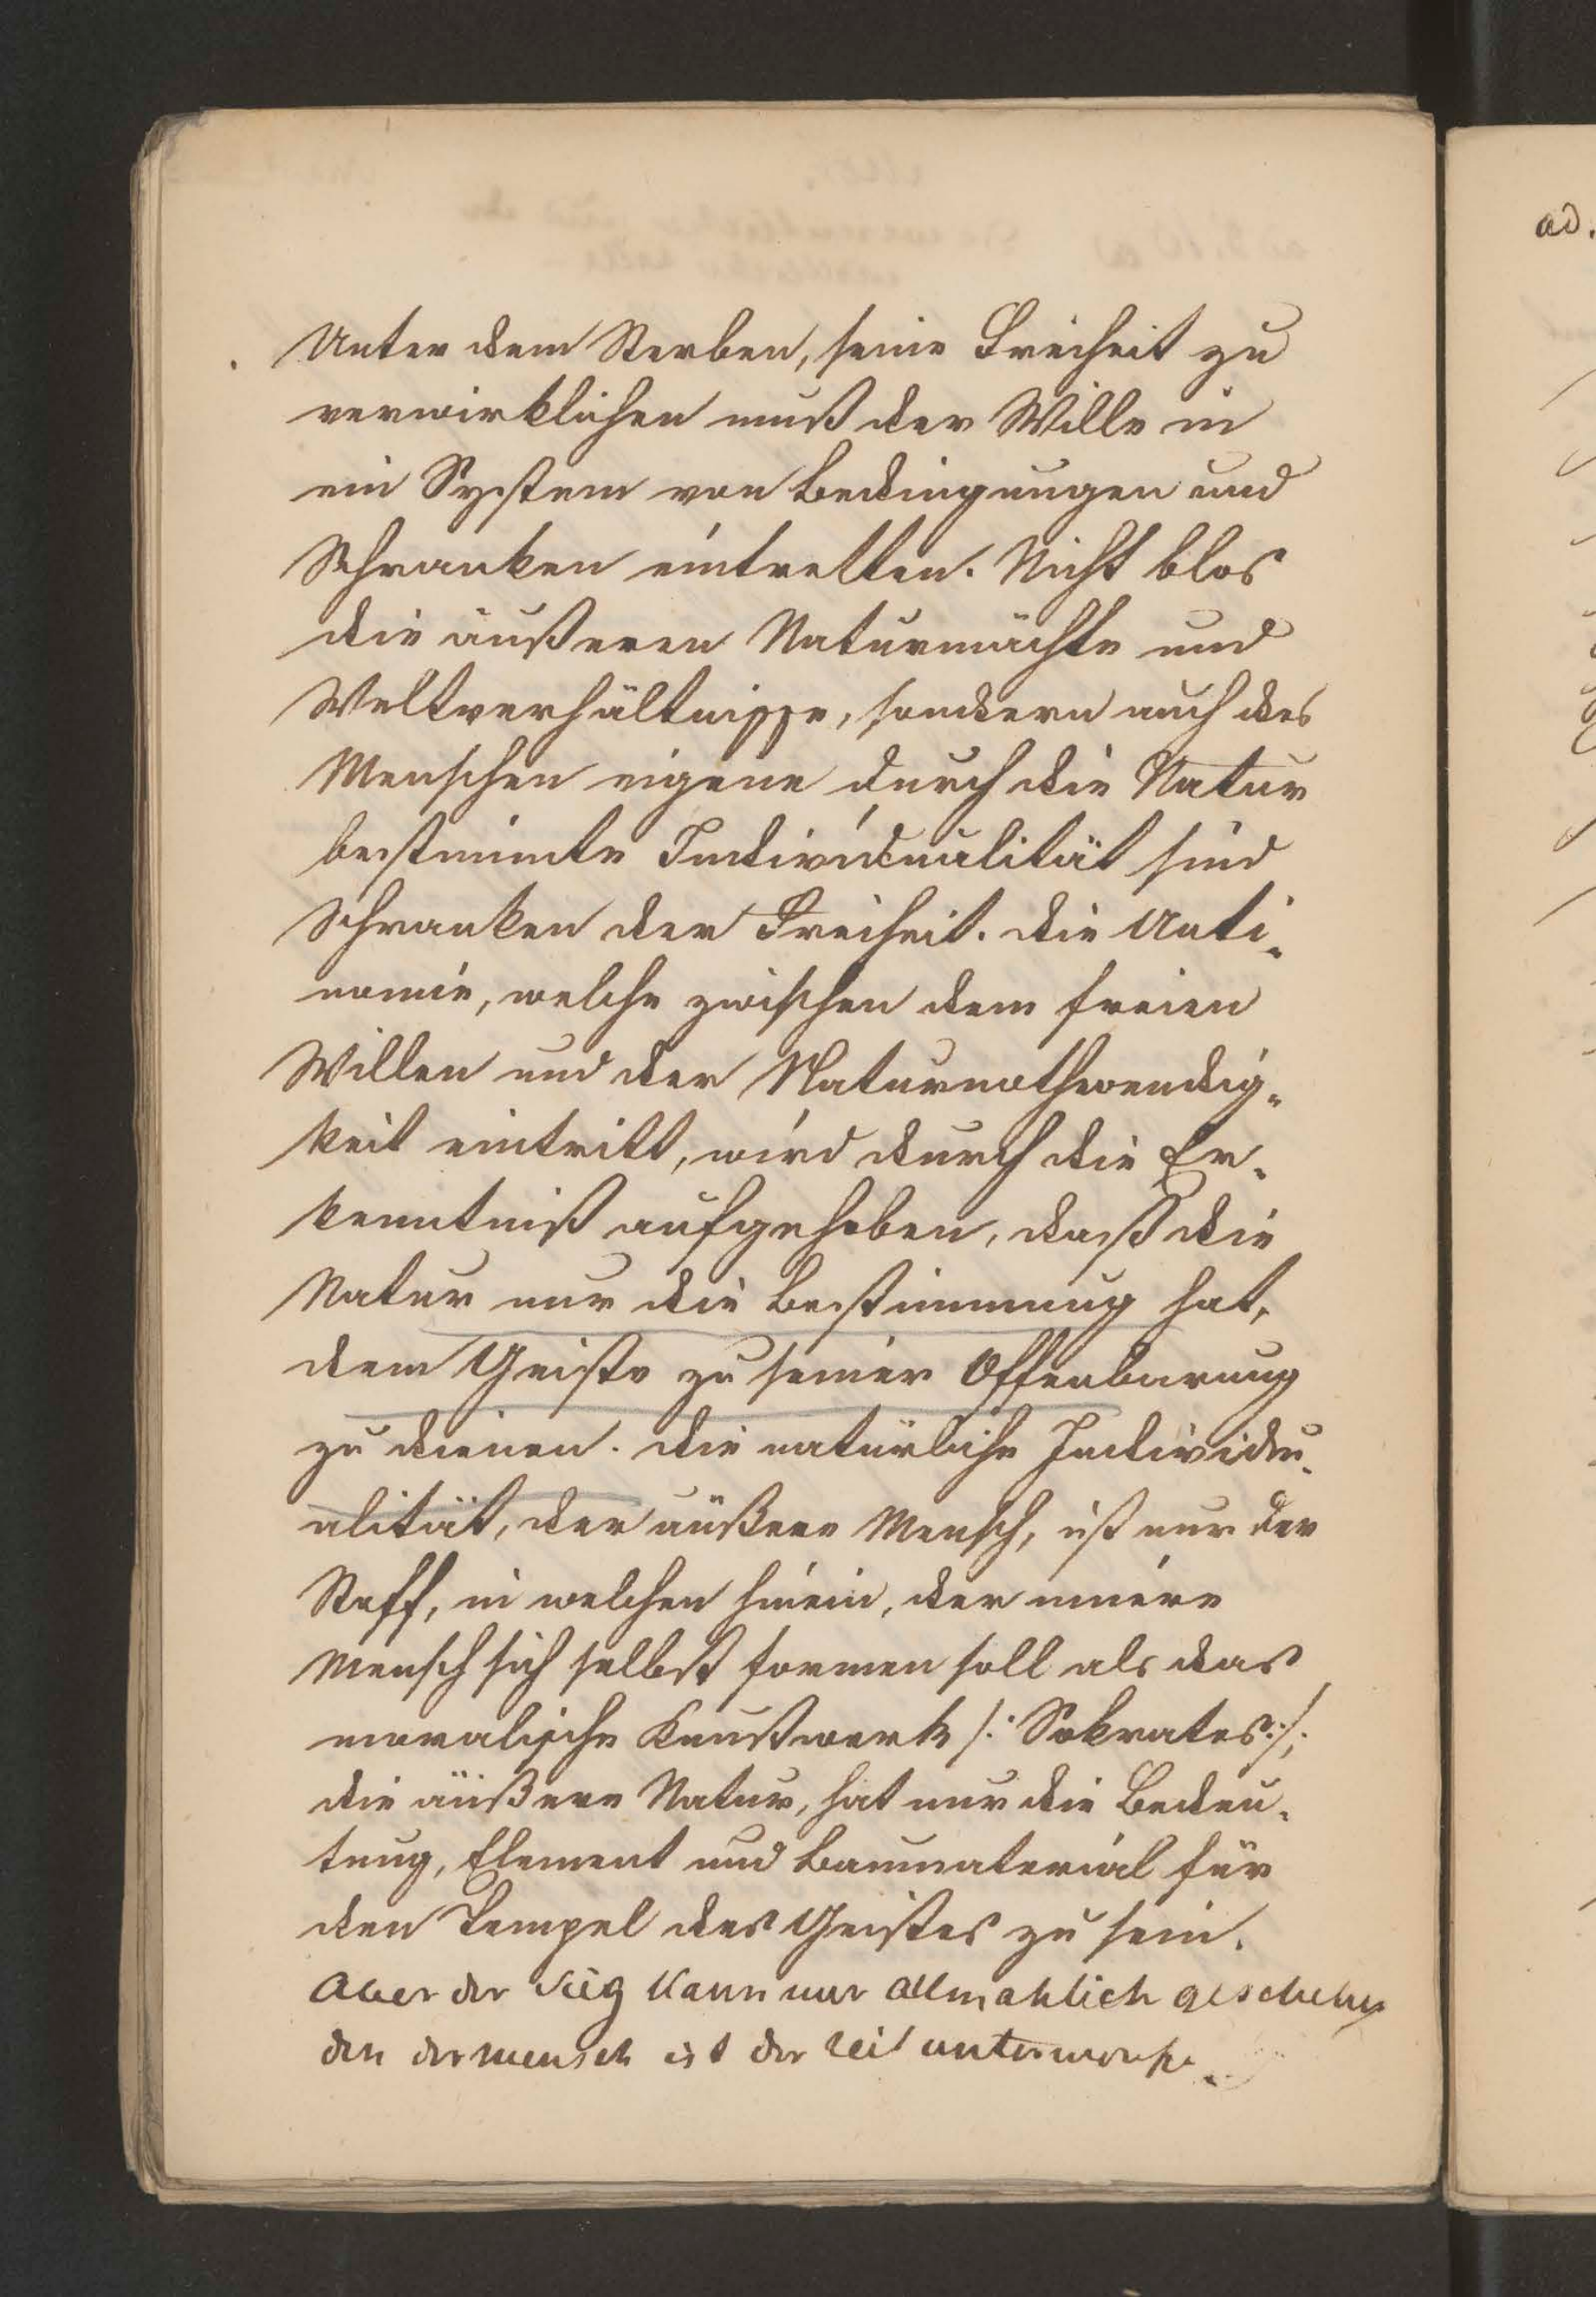 Unter dem Sterben, seine Freiheit zu
verwirklichen muß der Wille in
ein System von Bedingungen und
Schranken eintretten. Nicht blos
die äußeren Naturmächte und
Weltverhältnisse, sondern auch des
Menschen eigene durch die Natur
bestimmte Individualität sind
Schranken der Freiheit. die Anti-
nomie, welche zwischen dem freien
Willen und der Naturnothwendig-
keit eintritt, wird durch die Er-
kenntniß aufgehoben, daß die
Natur nur die Bestimmung hat,
dem Geiste zu seiner Offenbarung
zu dienen. die natürliche Individu-
alität, der äußere Mensch, ist nur der
Stoff, in welchen hinein, der innere
Mensch sich selbst formen soll als das
moralische Kunstwerk /: Sokrates :/;
die äußere Natur, hat nur die Bedeu-
tung, Element und Baumaterial für
den Tempel des Geistes zu sein.
Aber der Sieg kann nur allmahlich geschehen
den der mensch ist der Zeit unterworfe
ad.